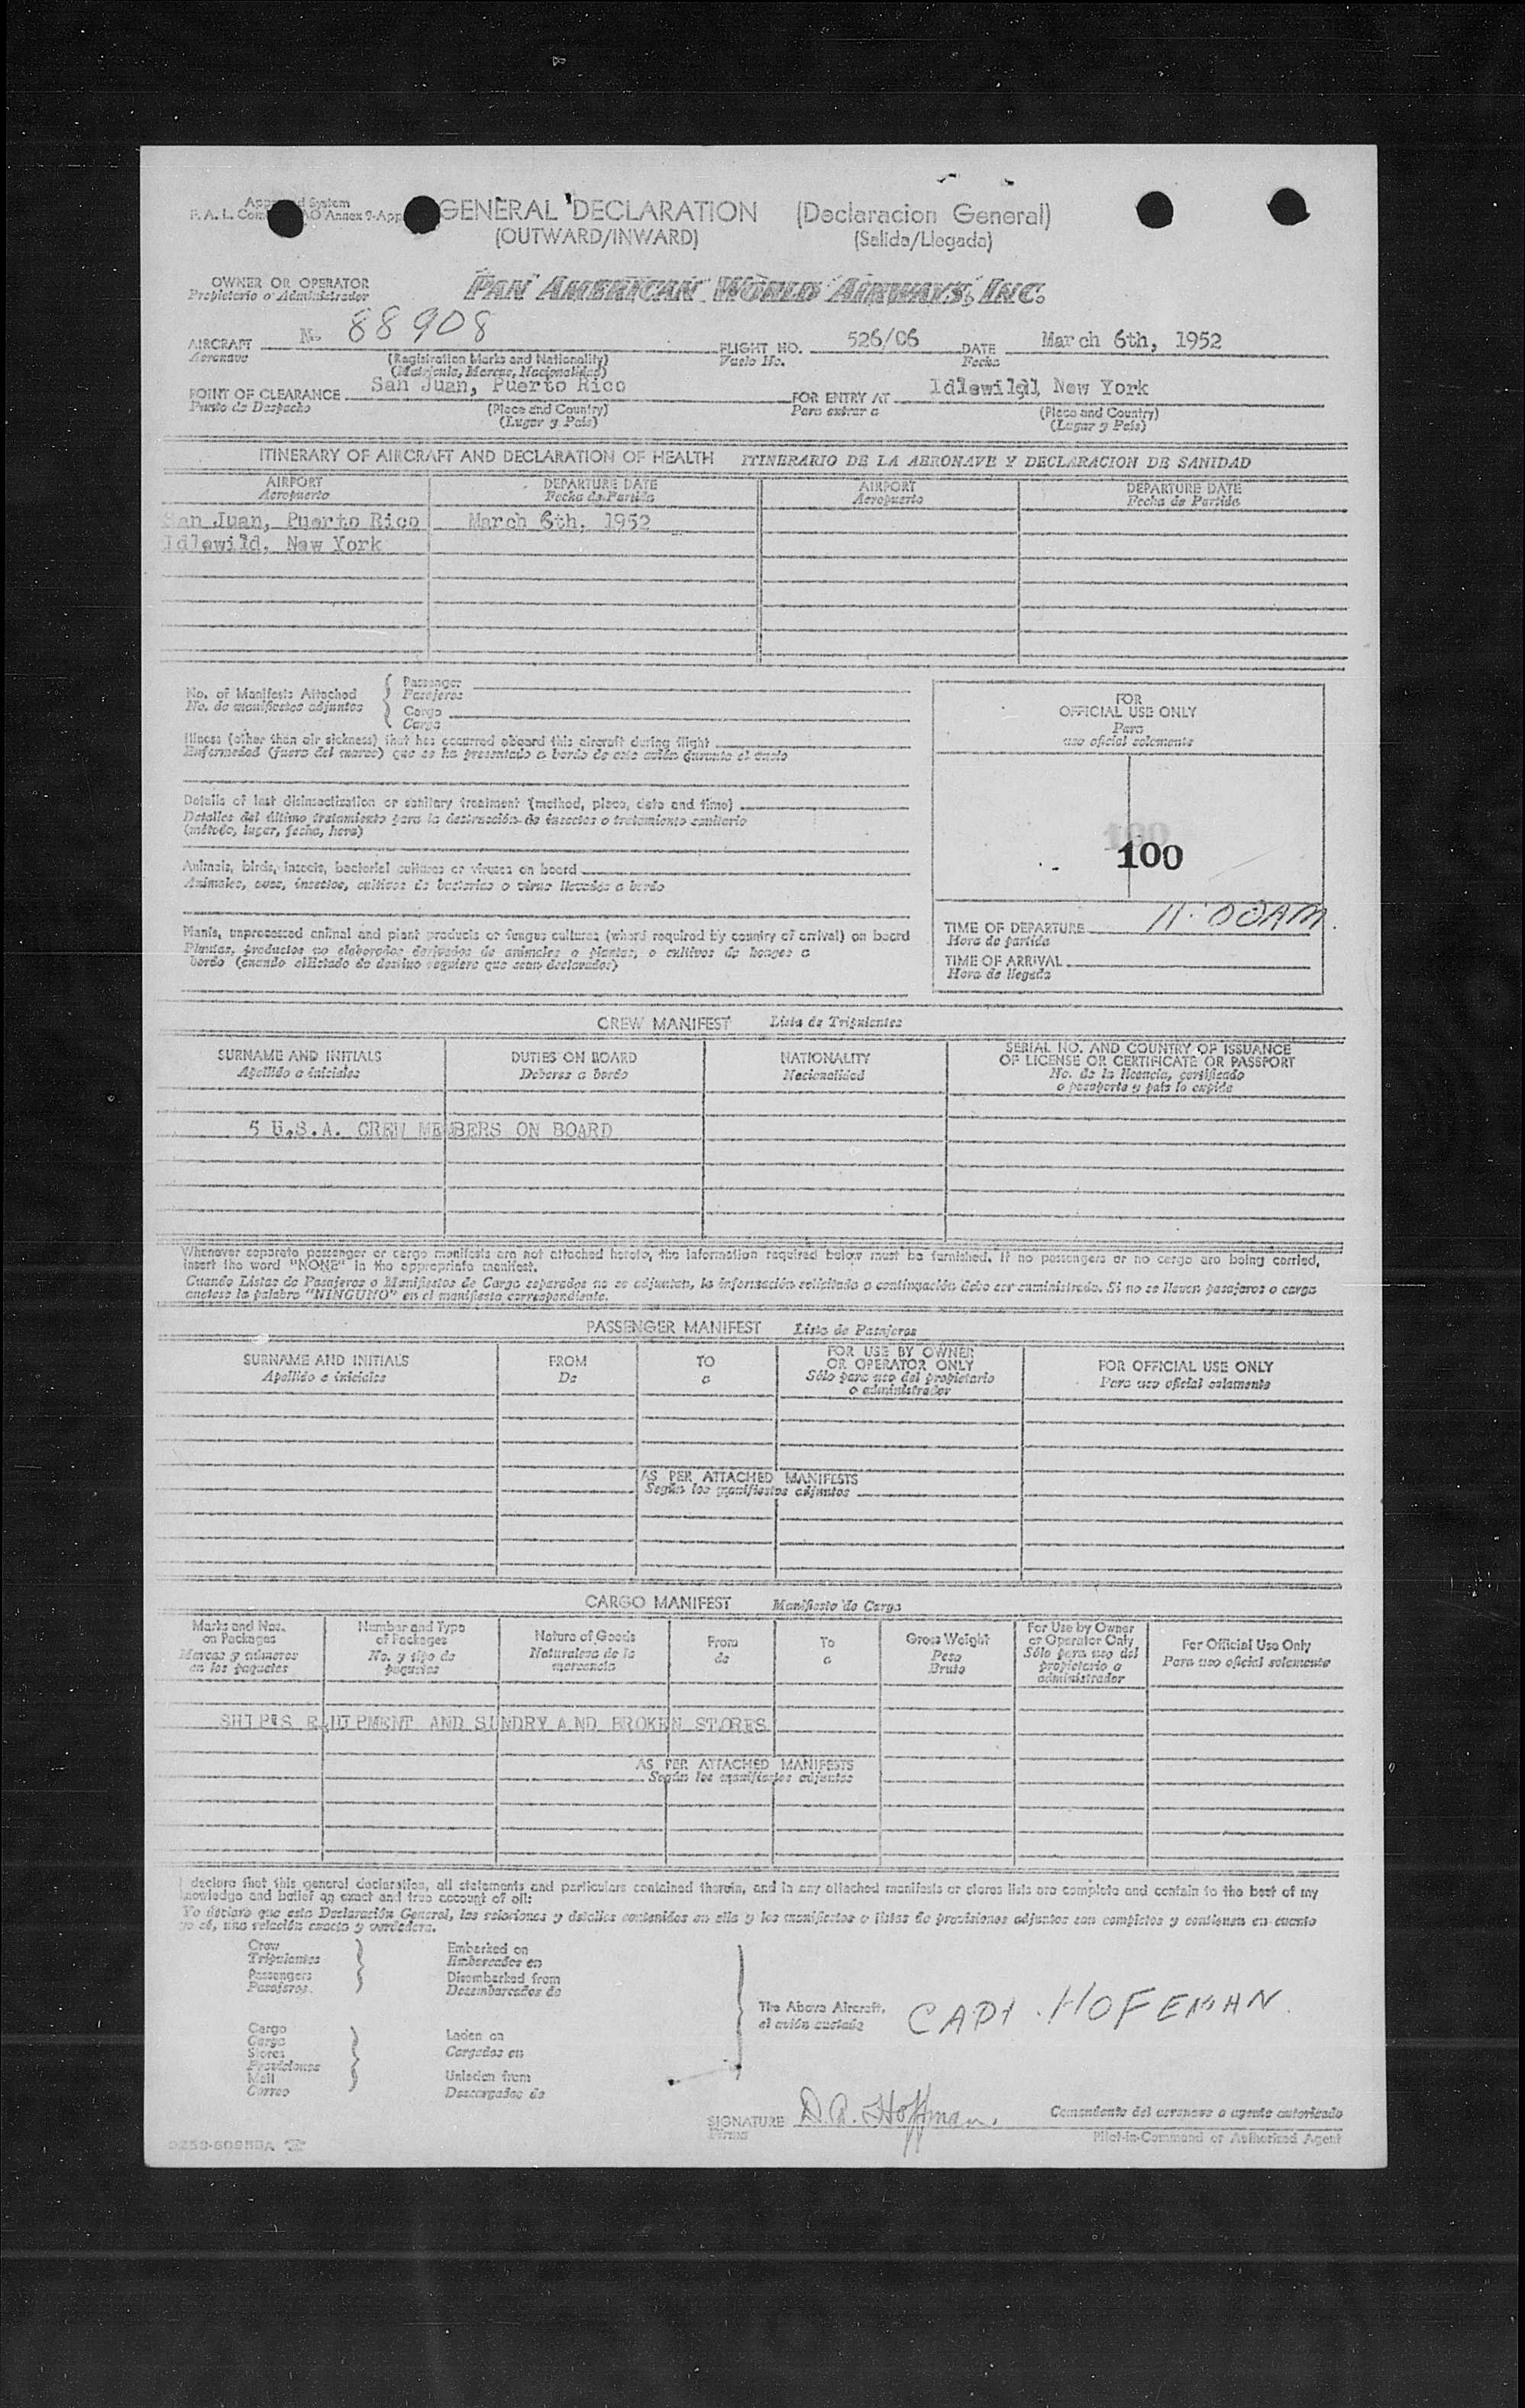 GENERAL DECLARATION (Declaracion General)
(OUTWARD/INWARD) (Salida/Llegada)
OWNER OR OPERATOR
Propietario o Administrador
PAN AMERICAN WORLD AIRWAYS, INC.
AIRCRAFT N- 88908 FLIGHT NO. 526/06 DATE March 6th, 1952
Aeronave (Registration Marks and Nationality) Vuelo No. Fecha
(Matricula, Marcas, Nacionalidad)
POINT OF CLEARANCE San Juan, Puerto Rico FOR ENTRY AT Idlewild, New York
Punto de Despacho (Place and Country) Para entrar a (Place and Country)
(Lugar y Pais) (Lugar y Pais)
ITINERARY OF AIRCRAFT AND DECLARATION OF HEALTH ITINERARIO DE LA AERONAVE Y DECLARACION DE SANIDAD
AIRPORT DEPARTURE DATE AIRPORT DEPARTURE DATE
Aeropuerto Fecha de Partida Aeropuerto Fecha de Partida
San Juan, Puerto Rico March 6th, 1952
Idlewild, New York
No. of Manifests Attached
No. de manifiestos adjuntos
Passenger
Pasajeros
Cargo
Carga
FOR
OFFICIAL USE ONLY
Para
uso oficial solamente
Illness (other than air sickness) that has occurred aboard this aircraft during flight
Enfermedad (fuera del mareo) que se ha presentado a bordo de este avión durante el vuelo
Details of last disinsectization or sanitary treatment (method, place, date and time)
Detalles del último tratamiento para la destrucción de insectos o tratamiento sanitario
(método, lugar, fecha, hora)
100
Animals, birds, insects, bacterial cultures or viruses on board
Animales, aves, insectos, cultivos de bacterias o virus llevados a bordo
Plants, unprocessed animal and plant products or fungus cultures (where required by country of arrival) on board
Plantas, productos no elaborados derivados de animales o plantas, o cultivos de hongos a
bordo (cuando el Estado de destino requiere que sean declarados)
TIME OF DEPARTURE 11:00AM.
Hora de partida
TIME OF ARRIVAL
Hora de llegada
CREW MANIFEST Lista de Tripulantes
SURNAME AND INITIALS DUTIES ON BOARD NATIONALITY SERIAL NO. AND COUNTRY OF ISSUANCE
OF LICENSE OR CERTIFICATE OR PASSPORT
Apellido e iniciales Deberes a bordo Nacionalidad No. de la licencia, certificado
o pasaporte y país lo expide
5 U.S.A. CREW MEMBERS ON BOARD
Whenever separate passenger or cargo manifests are not attached hereto, the information required below must be furnished. If no passengers or no cargo are being carried,
insert the word "NONE" in the appropriate manifest.
Cuando Listas de Pasajeros o Manifiestos de Carga separados no se adjunten, la información solicitada a continuación debe ser suministrada. Si no se llevan pasajeros o carga
anótese la palabra "NINGUNO" en el manifiesto correspondiente.
PASSENGER MANIFEST Lista de Pasajeros
SURNAME AND INITIALS FROM TO FOR USE BY OWNER OR OPERATOR ONLY FOR OFFICIAL USE ONLY
Apellido e iniciales De a Sólo para uso del propietario o administrador Para uso oficial solamente
AS PER ATTACHED MANIFESTS
Según los manifiestos adjuntos
CARGO MANIFEST Manifiesto de Carga
Marks and Nos. on Packages Number and Type of Packages Nature of Goods From To Gross Weight For Use by Owner or Operator Only For Official Use Only
Marcas y números en los paquetes No. y tipo de paquetes Naturaleza de la mercancía de a Peso Bruto Sólo para uso del propietario o administrador Para uso oficial solamente
SHIP'S EQUIPMENT AND SUNDRY AND BROKEN STORES
AS PER ATTACHED MANIFESTS
Según los manifiestos adjuntos
I declare that this general declaration, all statements and particulars contained therein, and in any attached manifests or stores lists are complete and contain to the best of my
knowledge and belief an exact and true account of all:
Yo declaro que esta Declaración General, las relaciones y detalles contenidos en ella y los manifiestos o listas de provisiones adjuntos son completos y contienen en cuanto
yo sé, una relación exacta y verdadera.
Crew Embarked on
Tripulantes Embarcados en
Passengers Disembarked from
Pasajeros Desembarcados de
The Above Aircraft.
CAPT. HOFFMAN.
Cargo
Carga Laden on
Stores Cargados en
Provisiones
Mail Unladen from
Correo Descargados de
SIGNATURE D.A. Hoffman. Comandante del aeronave o agente autorizado
Firma Pilot-in-Command or Authorized Agent